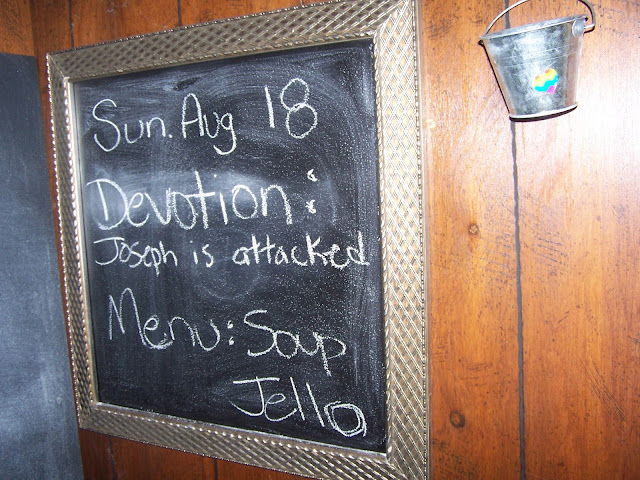 Sun. Aug 18
Devotion:
Joseph is attacked
Menu: Soup
Jello